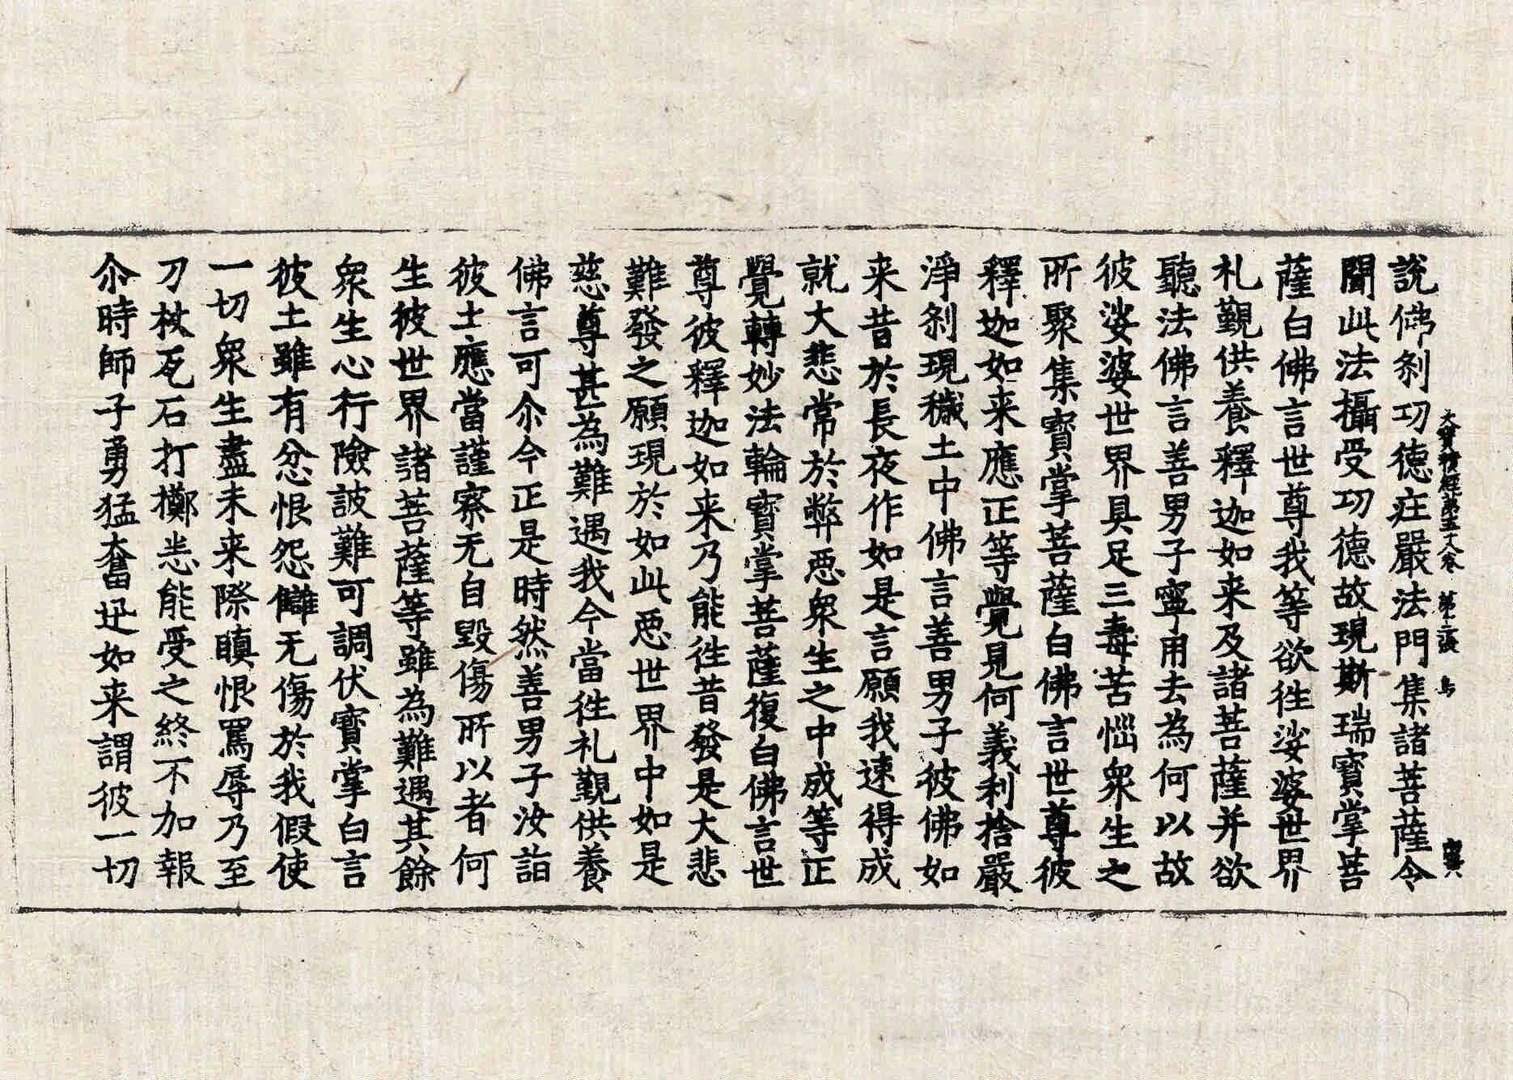 大寶積經第五十八卷 第十二張 鳥
說佛刹功德莊嚴法門集諸菩薩令
聞此法攝受功德故現斯瑞寶掌菩
薩白佛言世尊我等欲徃娑婆世界
礼覲供養釋迦如来及諸菩薩并欲
聽法佛言善男子寧用去為何以故
彼娑婆世界具足三毒苦惱衆生之
所聚集寶掌菩薩白佛言世尊彼
釋迦如来應正等覺見何義利捨嚴
淨刹現穢土中佛言善男子彼佛如
来昔於長夜作如是言願我速得成
就大悲常於弊惡衆生之中成等正
覺轉妙法輪寶掌菩薩復白佛言世
尊彼釋迦如来乃能徃昔發是大悲
難發之願現於如此惡世界中如是
慈尊甚為難遇我今當徃礼覲供養
佛言可尒今正是時然善男子汝詣
彼土應當謹察无自毀傷所以者何
生彼世界諸菩薩等雖為難遇其餘
衆生心行險詖難可調伏寶掌白言
彼土雖有忿恨怨讎无傷於我假使
一切衆生盡未来際瞋恨罵辱乃至
刀杖瓦石打擲悉能受之終不加報
尒時師子勇猛奮迅如来謂彼一切